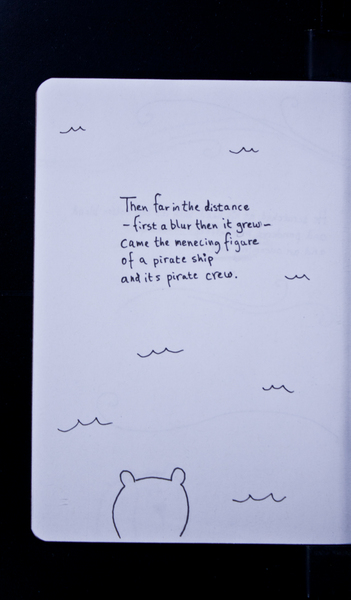 Then far in the distance
- first a blur then it grew -
came the menecing figure
of a pirate ship
and its pirate crew.